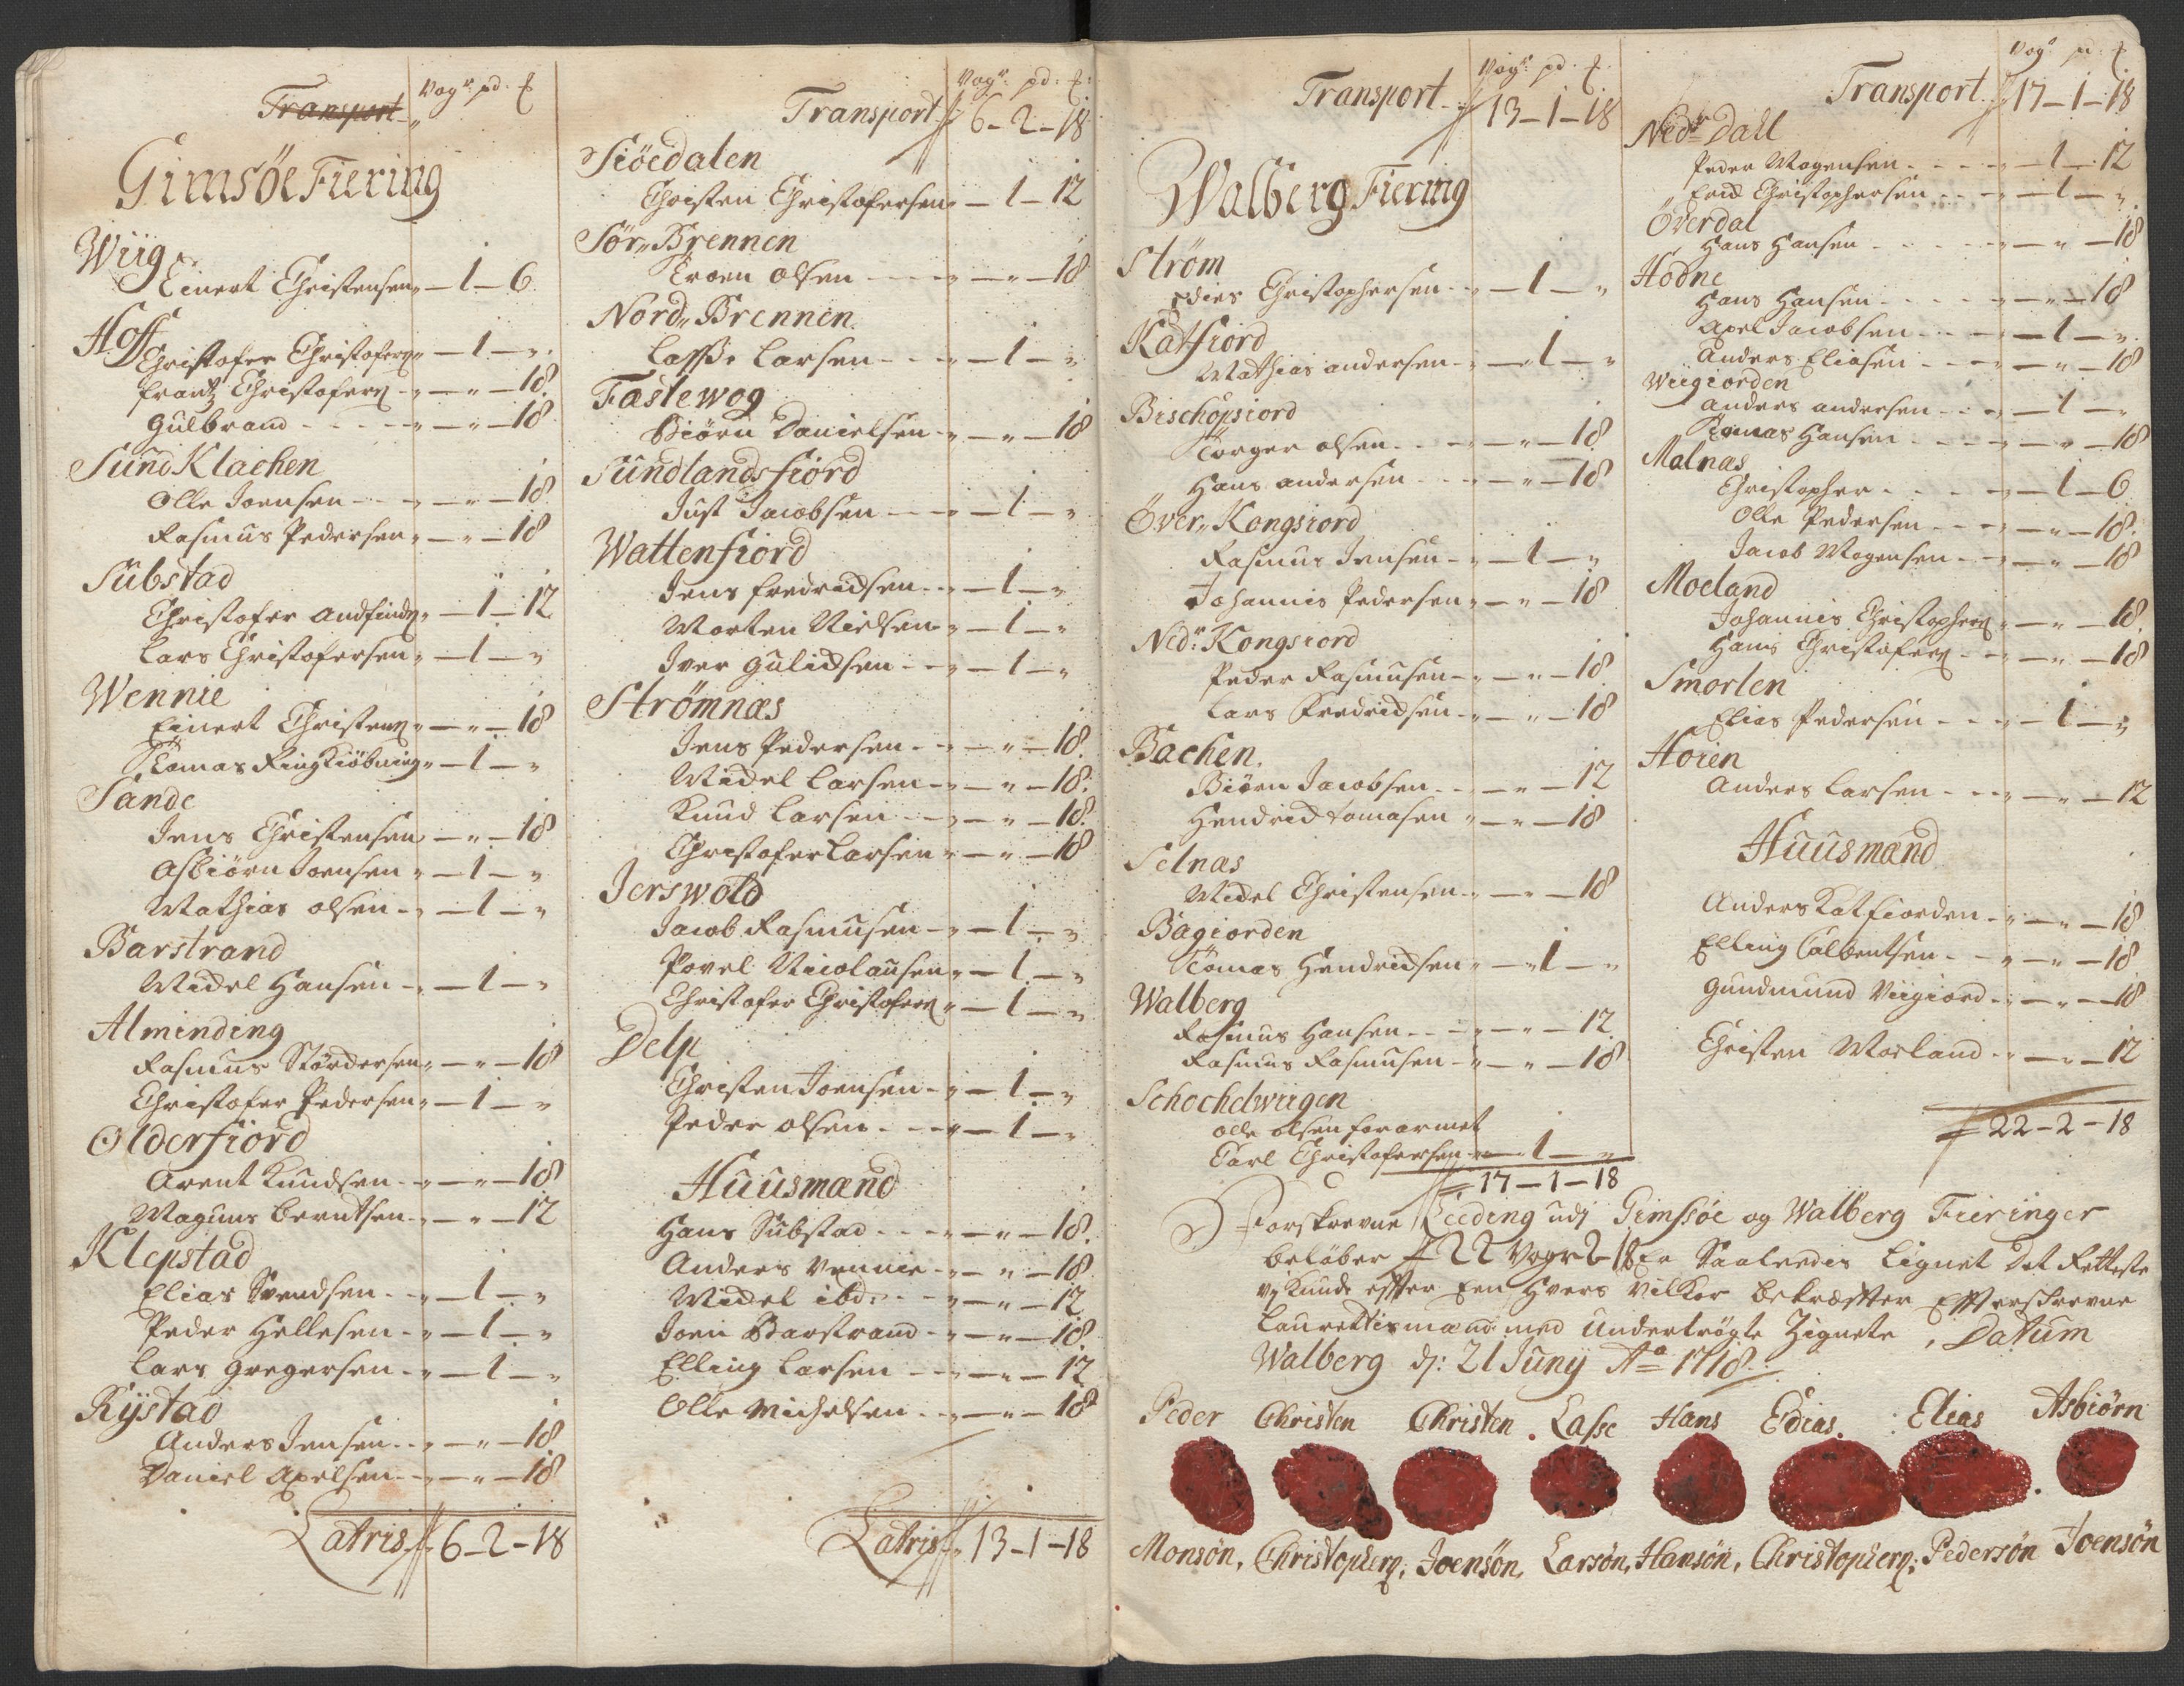 Vogr pd: ℔
Transport
Gimsöe Fiering
Wiig
Einert Christensen „ — 1 — 6
Hoff
Christofer Christofers: „ — 1 — „
Frantz Christofers: „ — „ — 18
Gulbrand - - - „ — „ — 18
Sund Klachen
Olle Joensen - - „ — „ — 18
Rasmus Pedersen „ — „ — 18
Substad
Christofer Andfinds: „ — 1 — 12
Lars Christofersen „ — 1 — „
Wennie
Einert Christens: „ — „ — 18
Tomas Ringkiöbning „ — 1 — „
Sande
Jens Christensen „ — „ — 18
Asbiörn Joensen „ — 1 — „
Mathias Olsen - „ — 1 — „
Barstrand
Michel Hansen - „ — 1 — „
Alminding
Rasmus Störckersen „ — „ — 18
Christofer Pedersen „ — 1 — „
Olderfiord
Arent Knudsen - „ — „ — 18
Magnus Berntsen - „ — „ — 12
Klepstad
Elias Svendsen - „ — 1 — „
Peder Hellesen - „ — 1 — „
Lars Gregersen - „ — 1 — „
Rystad
Anders Jensen - „ — „ — 18
Daniel Axelsen - „ — „ — 18
Latris 6 — 2 — 18
Vogr pd: ℔:
Transport 6 — 2 — 18
Siöedalen
Christen Christofersen — 1 — 12
Sör„ Brennen
Eroen Olsen - - „ — „ — 18
Nord„ Brennen
Lasse Larsen - - „ — 1 — „
Fastewog
Biörn Danielsen - „ — „ — 18
Sundlandsfiord
Just Jacobsen - - „ — 1 — „
Wattenfiord
Jens Fredricksen - - „ — 1 — „
Morten Nielsen „ — 1 — „
Iver Gulicksen - - „ — 1 — „
Strömnæs
Jens Pedersen - - „ — „ — 18
Michel Larsen - „ — „ — 18
Knud Larsen - - „ — „ — 18
Christofer Larsen „ — „ — 18
Jerswold
Jacob Rasmusen - „ — 1 — „
Povel Nicolausen „ — 1 — „
Christofer Christofers: „ — 1 — „
Delp
Christen Joensen - „ — 1 — „
Peder Olsen - - - „ — 1 — „
Huusmænd
Hans Substad - - - „ — „ — 18
Anders Vennie - „ — „ — 18
Michel ibd: - - „ — „ — 12
Joen Barstrand - „ — „ — 18
Elling Larsen - - „ — „ — 12
Olle Michelsen - - „ — „ — 18
Latris 13 — 1 — 18
Vogr: pd: ℔:
Transport 13 — 1 — 18
Walberg Fiering
Ström
Christophersen - - „ — 1 — „
Katfiord
Mathias Andersen - „ — 1 — „
Bischopsiord
Torger Olsen - - - „ — „ — 18
Hans Andersen - - „ — „ — 18
Över„ Kongsiord
Rasmus Jensen - „ — 1 — „
Johannis Pedersen „ — „ — 18
Nedr Kongsiord
Peder Rasmusen - „ — „ — 18
Lars Fredricksen - „ — „ — 18
Bachen
Biörn Jacobsen - - „ — „ — 12
Hendrick Tomasen „ — „ — 18
Selnæs
Michel Christensen - „ — „ — 18
Bagiorden
Tomas Hendricksen „ — 1 — „
Walberg
Rasmus Hansen - - „ — „ — 12
Rasmus Rasmusen - „ — „ — 18
Schochelwiigen
Olle Olsen forarmet
Carl Christofersen „ — 1 — „
17 — 1 — 18
Vogr pd: ℔
Transport 17 — 1 — 18
Nedr Dall
Peder Mogensen - - - „ — 1 — 12
Christophersen - - „ — 1 — „
Överdal
Hans Hansen - - - - „ — „ — 18
Hodne
Hans Hansen - - - „ — „ — 18
Axel Jacobsen - - - „ — 1 — „
Anders Eliasen - - - „ — „ — 18
Wiigiorden
Anders Andersen - - „ — 1 — „
Tomas Hansen - - - „ — „ — 18
Malnæs
Christopher - - - - „ — 1 — 6
Olle Pedersen - - - „ — „ — 18
Jacob Mogensen - - „ — „ — 18
Moeland
Johannis Christophers: „ — „ — 18
Hans Christofers: - „ — „ — 18
Smorten
Elias Pedersen - - - „ — 1 — „
Hoien
Anders Larsen - - - „ — „ — 12
Huusmænd
Anders Katfiorden - „ — „ — 18
Elling Colbentsen - - „ — „ — 18
Gundmund Viigiord - „ — „ — 18
Christen Morland - - „ — „ — 12
22 — 2 — 18
Forskrevne Leeding udj Gimssöe og Walberg Fieringer
belöber 22 Vogr 2 - 18 Er Saaledis Lignet Det Retteste
vj kunde effter Een Hvers Vilkor bekræffter Effterskrevne
Laurettismænd med undertrögte Zignete, Datum
Walberg d: 21 Junij Ao 1718.
Peder Christen Christen Lasse Hans Edias Elias Asbiörn
Monsön, Christophers:, Joensön, Larsön, Hansön, Christophers:, Pedersön Joensön